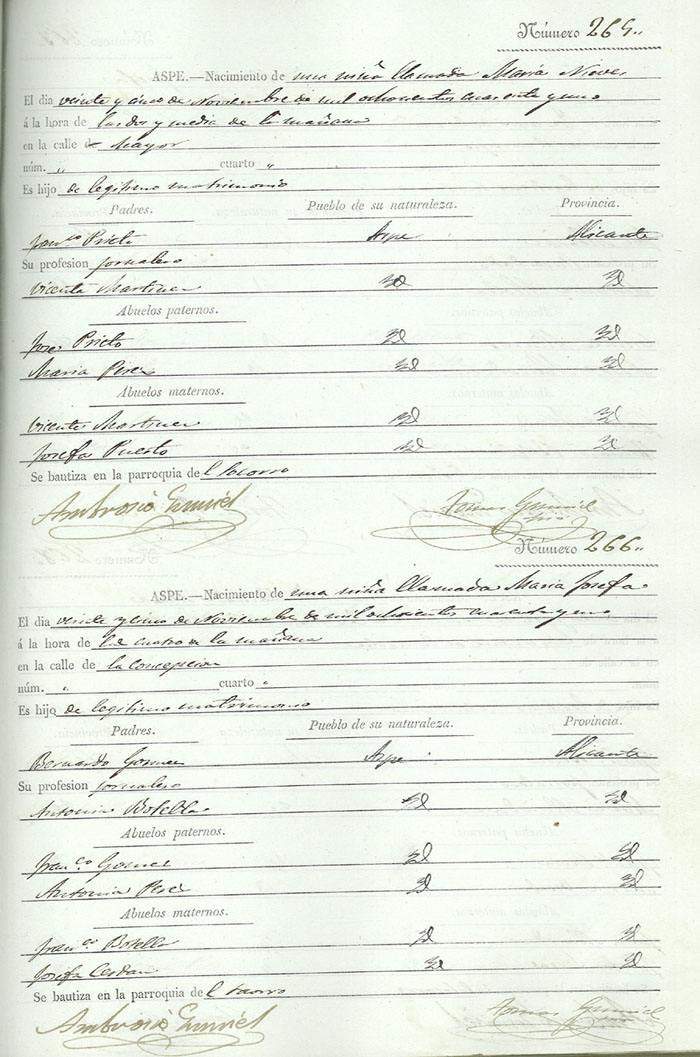 Número 265..
ASPE.—Nacimiento de una niña llamada María Nieves
El dia veinte y cinco de Noviembre de mil ochocientos cuarenta y uno
á la hora de las dos y media de la mañana
en la calle de Mayor
núm. „ cuarto „
Es hijo de legítimo matrimonio
Padres. Pueblo de su naturaleza. Provincia.
Franco Prieto Aspe Alicante
Su profesion jornalero
Vicenta Martinez Id Id
Abuelos paternos.
José Prieto Id Id
Maria Perez Id Id
Abuelos maternos.
Vicente Martinez Id Id
Josefa Puerto Id Id
Se bautiza en la parroquia del Socorro
Ambrosio Gumiél Tomas Gumiél
Número 266..
ASPE.—Nacimiento de una niña llamada Maria Josefa
El dia veinte y cinco de Noviembre de mil ochocientos cuarenta y uno
á la hora de las cuatro de la mañana
en la calle de la Concepcion
núm. „ cuarto „
Es hijo de legítimo matrimonio
Padres. Pueblo de su naturaleza. Provincia.
Bernardo Gomez Aspe Alicante
Su profesion jornalero
Antonia Botella Id Id
Abuelos paternos.
Franco. Gomez Id Id
Antonia Perez Id Id
Abuelos maternos.
Franco. Botella Id Id
Josefa Cerdan Id Id
Se bautiza en la parroquia del Socorro
Ambrosio Gumiél Tomas Gumiél